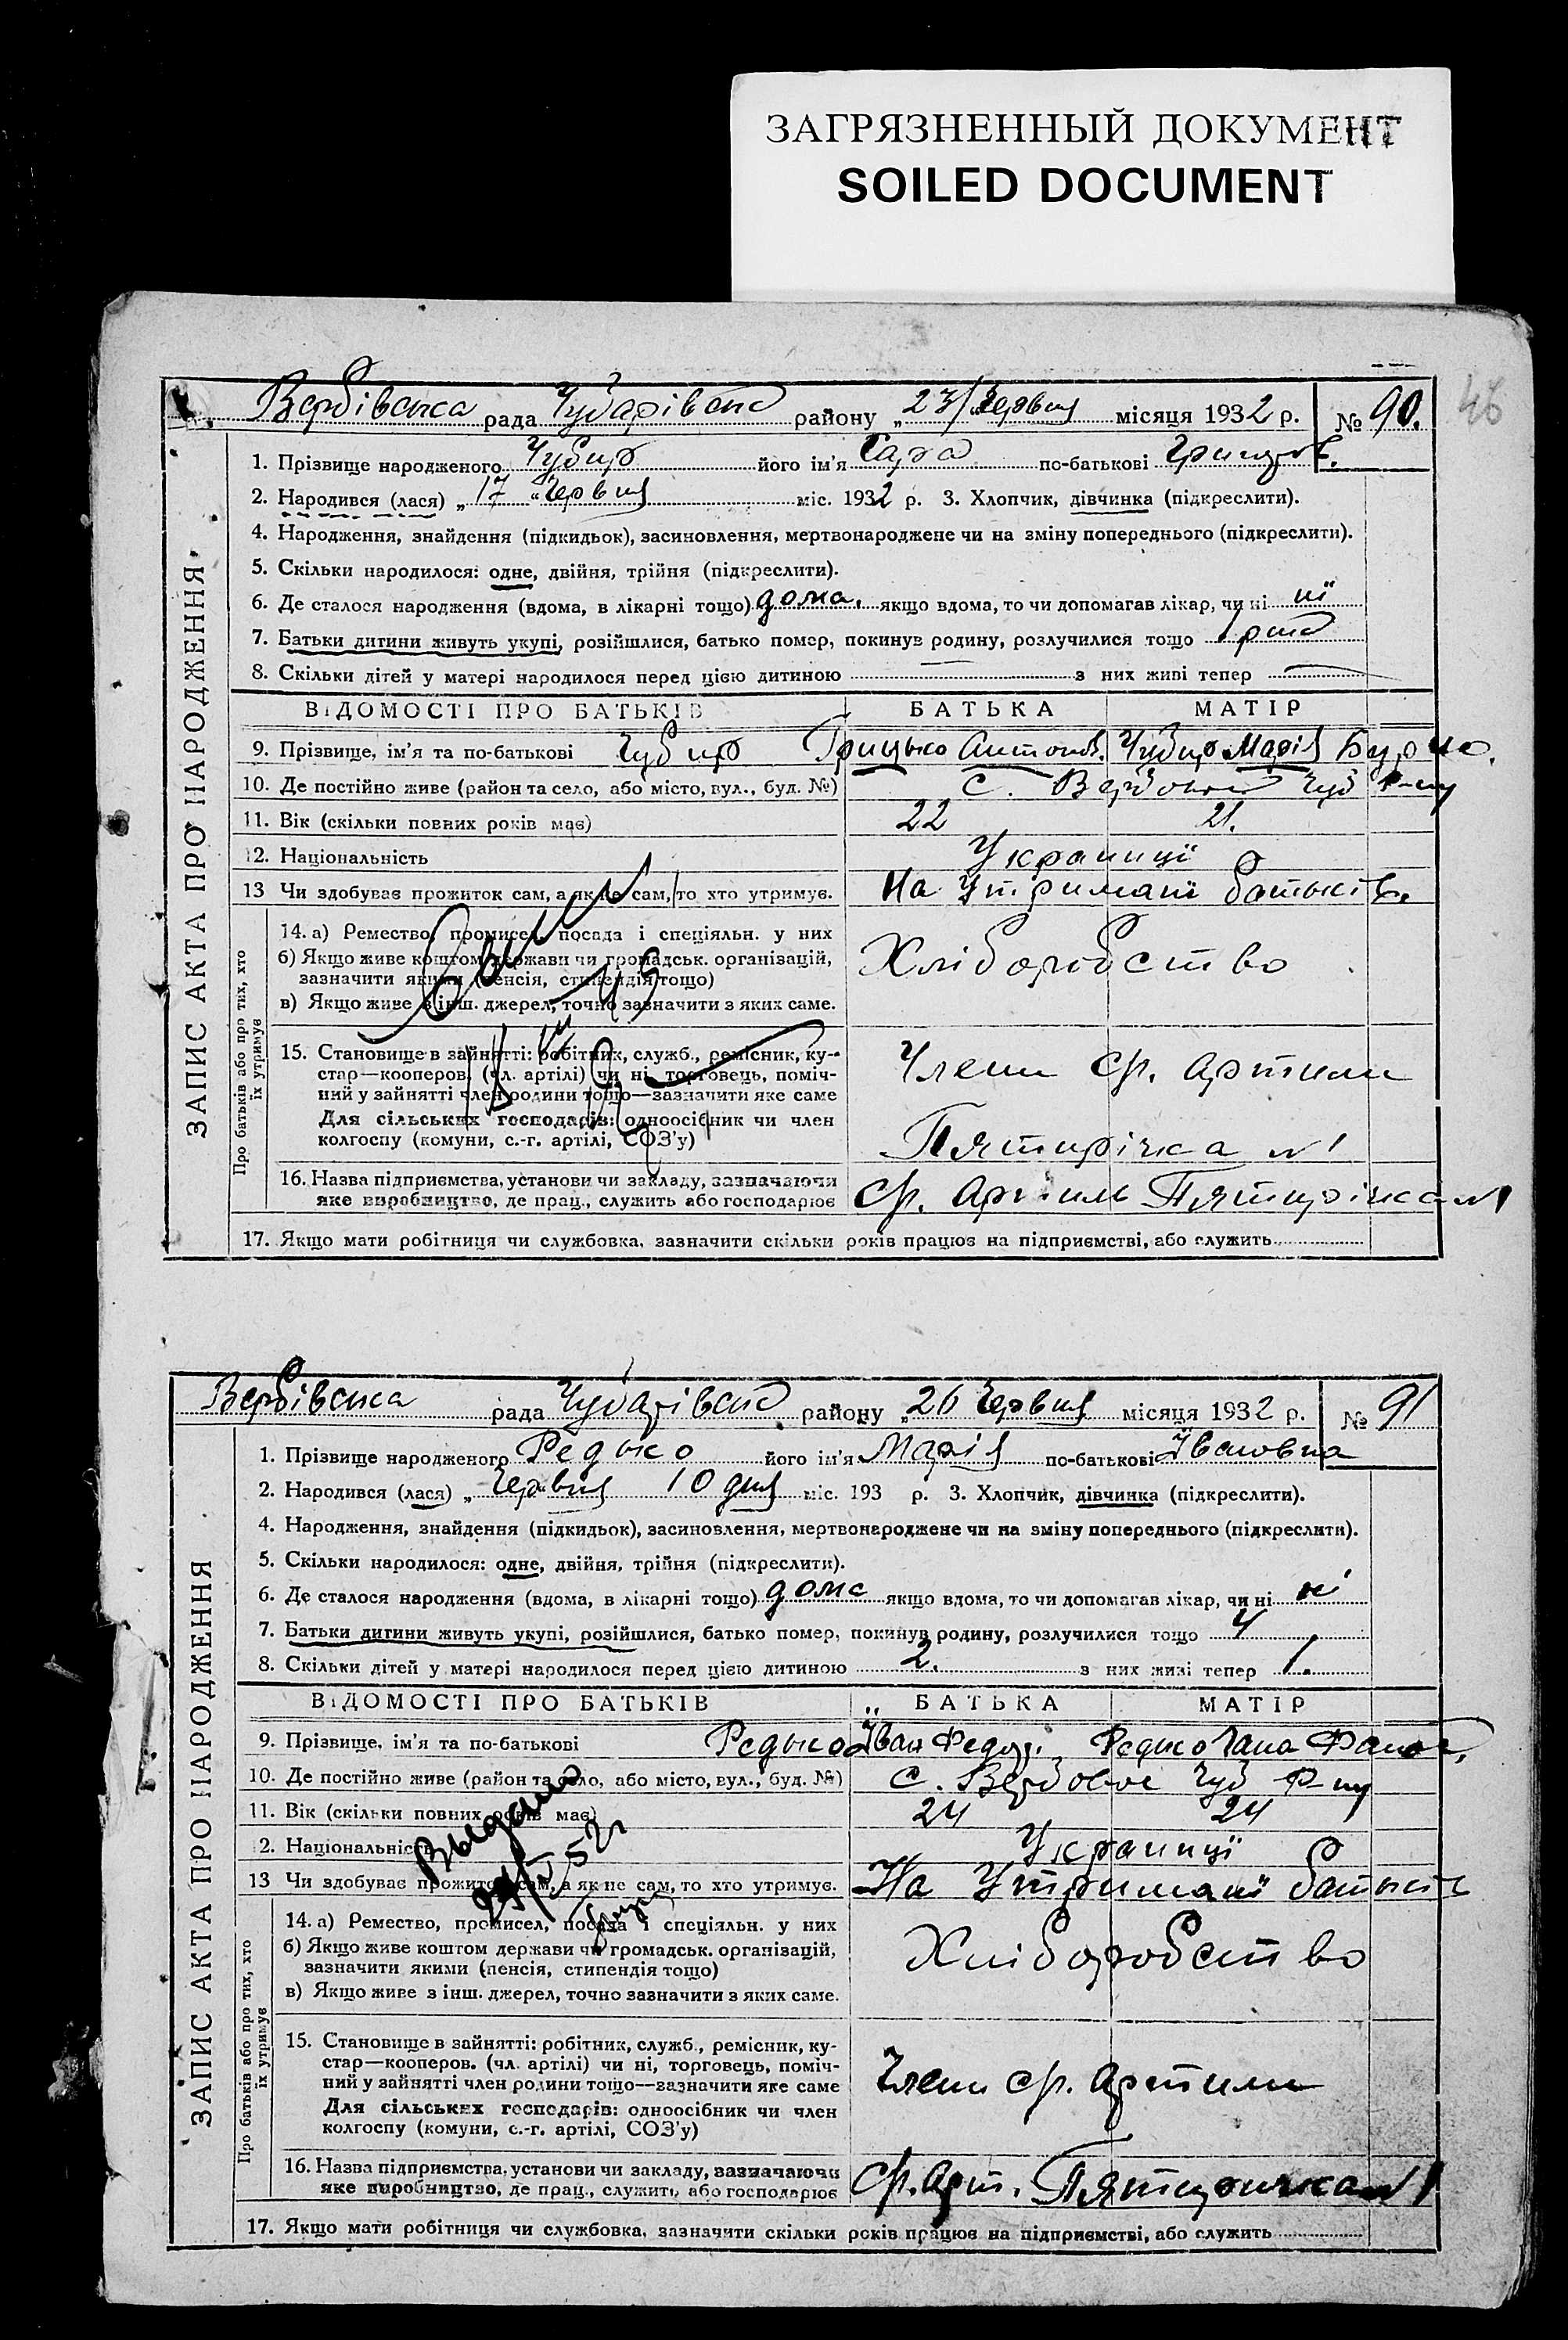 ЗАГРЯЗНЕННЫЙ ДОКУМЕНТ
SOILED DOCUMENT
46
Вербівська рада Чубарівськ району „23/„Червня місяця 1932 р. № 90.
ЗАПИС АКТА ПРО НАРОДЖЕННЯ
1. Прізвище народженого Чубир його ім'я Сара по-батькові
2. Народився (лася) „17 „Червня міс. 1932 р. 3. Хлопчик, дівчинка (підкреслити).
4. Народження, знайдення (підкидьок), засиновлення, мертвонароджене чи на зміну попереднього (підкреслити).
5. Скільки народилося: одне, двійня, трійня (підкреслити).
6. Де сталося народження (вдома, в лікарні тощо) дома. якщо вдома, то чи допомагав лікар, чи ні ні
7. Батьки дитини живуть укупі, розійшлися, батько помер, покинув родину, розлучилися тощо
8. Скільки дітей у матері народилося перед цією дитиною — з них живі тепер —
ВІДОМОСТІ ПРО БАТЬКІВ БАТЬКА МАТІР
9. Прізвище, ім'я та по-батькові Чубир Грицько Антонов. Чубир Марія
10. Де постійно живе (район та село, або місто, вул., буд. №) с. Вербове Чуб р-ну
11. Вік (скільки повних років має) 22 21.
12. Національність Украинці
13 Чи здобуває прожиток сам, а як не сам, то хто утримує. На Утримані батьків.
Про батьків або про тих, хто їх утримує
14. а) Ремество, промисел, посада і спеціяльн. у них
б) Якщо живе коштом держави чи громадськ. організацій,
зазначити якими (пенсія, стипендія тощо)
в) Якщо живе з інш. джерел, точно зазначити з яких саме.
Хліборобство
15. Становище в зайнятті: робітник, служб., ремісник, ку-
стар—кооперов. (чл. артілі) чи ні, торговець, поміч-
ний у зайнятті член родини тощо—зазначити яке саме
Для сільських господарів: одноосібник чи член
колгоспу (комуни, с.-г. артілі, СОЗ'у)
Члени ср. артили
Пятирічка №1
16. Назва підприємства, установи чи закладу, зазначаючи
яке виробництво, де прац., служить або господарює
ср. Артиль Пятирічка №1
17. Якщо мати робітниця чи службовка, зазначити скільки років працює на підприємстві, або служить
Вербівська рада Чубарівськ району „26 Червня місяця 1932 р. № 91
ЗАПИС АКТА ПРО НАРОДЖЕННЯ
1. Прізвище народженого Редько його ім'я Марія по-батькові Івановна
2. Народився (лася) „Червня 10 дня міс. 193 р. 3. Хлопчик, дівчинка (підкреслити).
4. Народження, знайдення (підкидьок), засиновлення, мертвонароджене чи на зміну попереднього (підкреслити).
5. Скільки народилося: одне, двійня, трійня (підкреслити).
6. Де сталося народження (вдома, в лікарні тощо) дома якщо вдома, то чи допомагав лікар, чи ні ні
7. Батьки дитини живуть укупі, розійшлися, батько помер, покинув родину, розлучилися тощо 4
8. Скільки дітей у матері народилося перед цією дитиною 2. з них живі тепер 1.
ВІДОМОСТІ ПРО БАТЬКІВ БАТЬКА МАТІР
9. Прізвище, ім'я та по-батькові Редько Іван Федор. Редько Гана
10. Де постійно живе (район та село, або місто, вул., буд. №) с. Вербове Чуб р-ну
11. Вік (скільки повних років має) 24 24
12. Національність Украинці
13 Чи здобуває прожиток сам, а як не сам, то хто утримує. На Утримані батьків
Выдано
Про батьків або про тих, хто їх утримує
14. а) Ремество, промисел, посада і спеціяльн. у них
б) Якщо живе коштом держави чи громадськ. організацій,
зазначити якими (пенсія, стипендія тощо)
в) Якщо живе з інш. джерел, точно зазначити з яких саме.
Хліборобство
15. Становище в зайнятті: робітник, служб., ремісник, ку-
стар—кооперов. (чл. артілі) чи ні, торговець, поміч-
ний у зайнятті член родини тощо—зазначити яке саме
Для сільських господарів: одноосібник чи член
колгоспу (комуни, с.-г. артілі, СОЗ'у)
Члени ср. артили
16. Назва підприємства, установи чи закладу, зазначаючи
яке виробництво, де прац., служить або господарює
ср. Арт. Пятирічка №1
17. Якщо мати робітниця чи службовка, зазначити скільки років працює на підприємстві, або служить